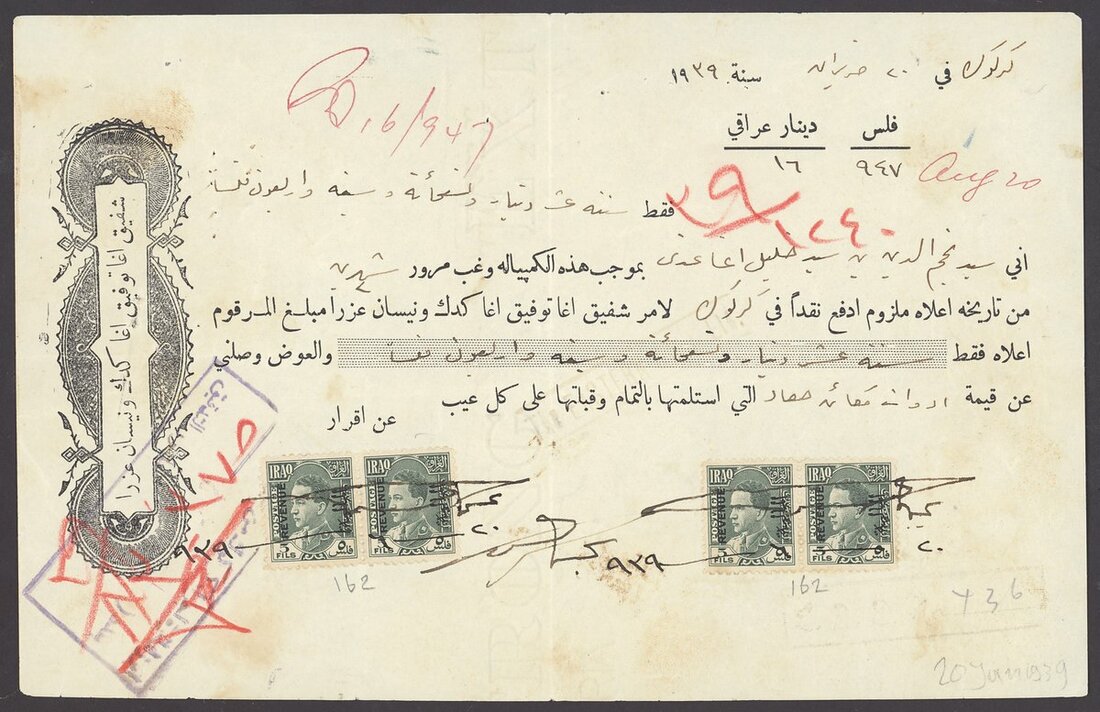 كركوك في ٢٠ حزيران سنة ١٩٣٩
فلس دينار عراقي
٩٤٧ ١٦
16/947
Aug 20
فقط ستة عشر دينار وتسعمائة وسبعة واربعون فلسا
٣٩/١٢٤٠
اني سيد نجم الدين بن سيد خليل اغا بموجب هذه الكمبياله وغب مرور شهرين
من تاريخه اعلاه ملزوم ادفع نقداً في كركوك لامر شفيق اغا توفيق اغا كدك ونيسان عزرا مبلغ المرقوم
اعلاه فقط ستة عشر دينار وتسعمائة وسبعة واربعون فلسا والعوض وصلني
عن قيمة ادوات التي استلمتها بالتمام وقبلتها على كل عيب
عن اقرار
شفيق اغا توفيق اغا كدك ونيسان عزرا
IRAQ العراق
POSTAGE
REVENUE
FILS ٥ فلس
IRAQ العراق
POSTAGE
REVENUE
FILS ٥ فلس
IRAQ العراق
POSTAGE
REVENUE
FILS ٥ فلس
IRAQ العراق
POSTAGE
REVENUE
FILS ٥ فلس
٢٠
٩٣٩
٢٠
٩٣٩
162
162
736
20 Jun 1939